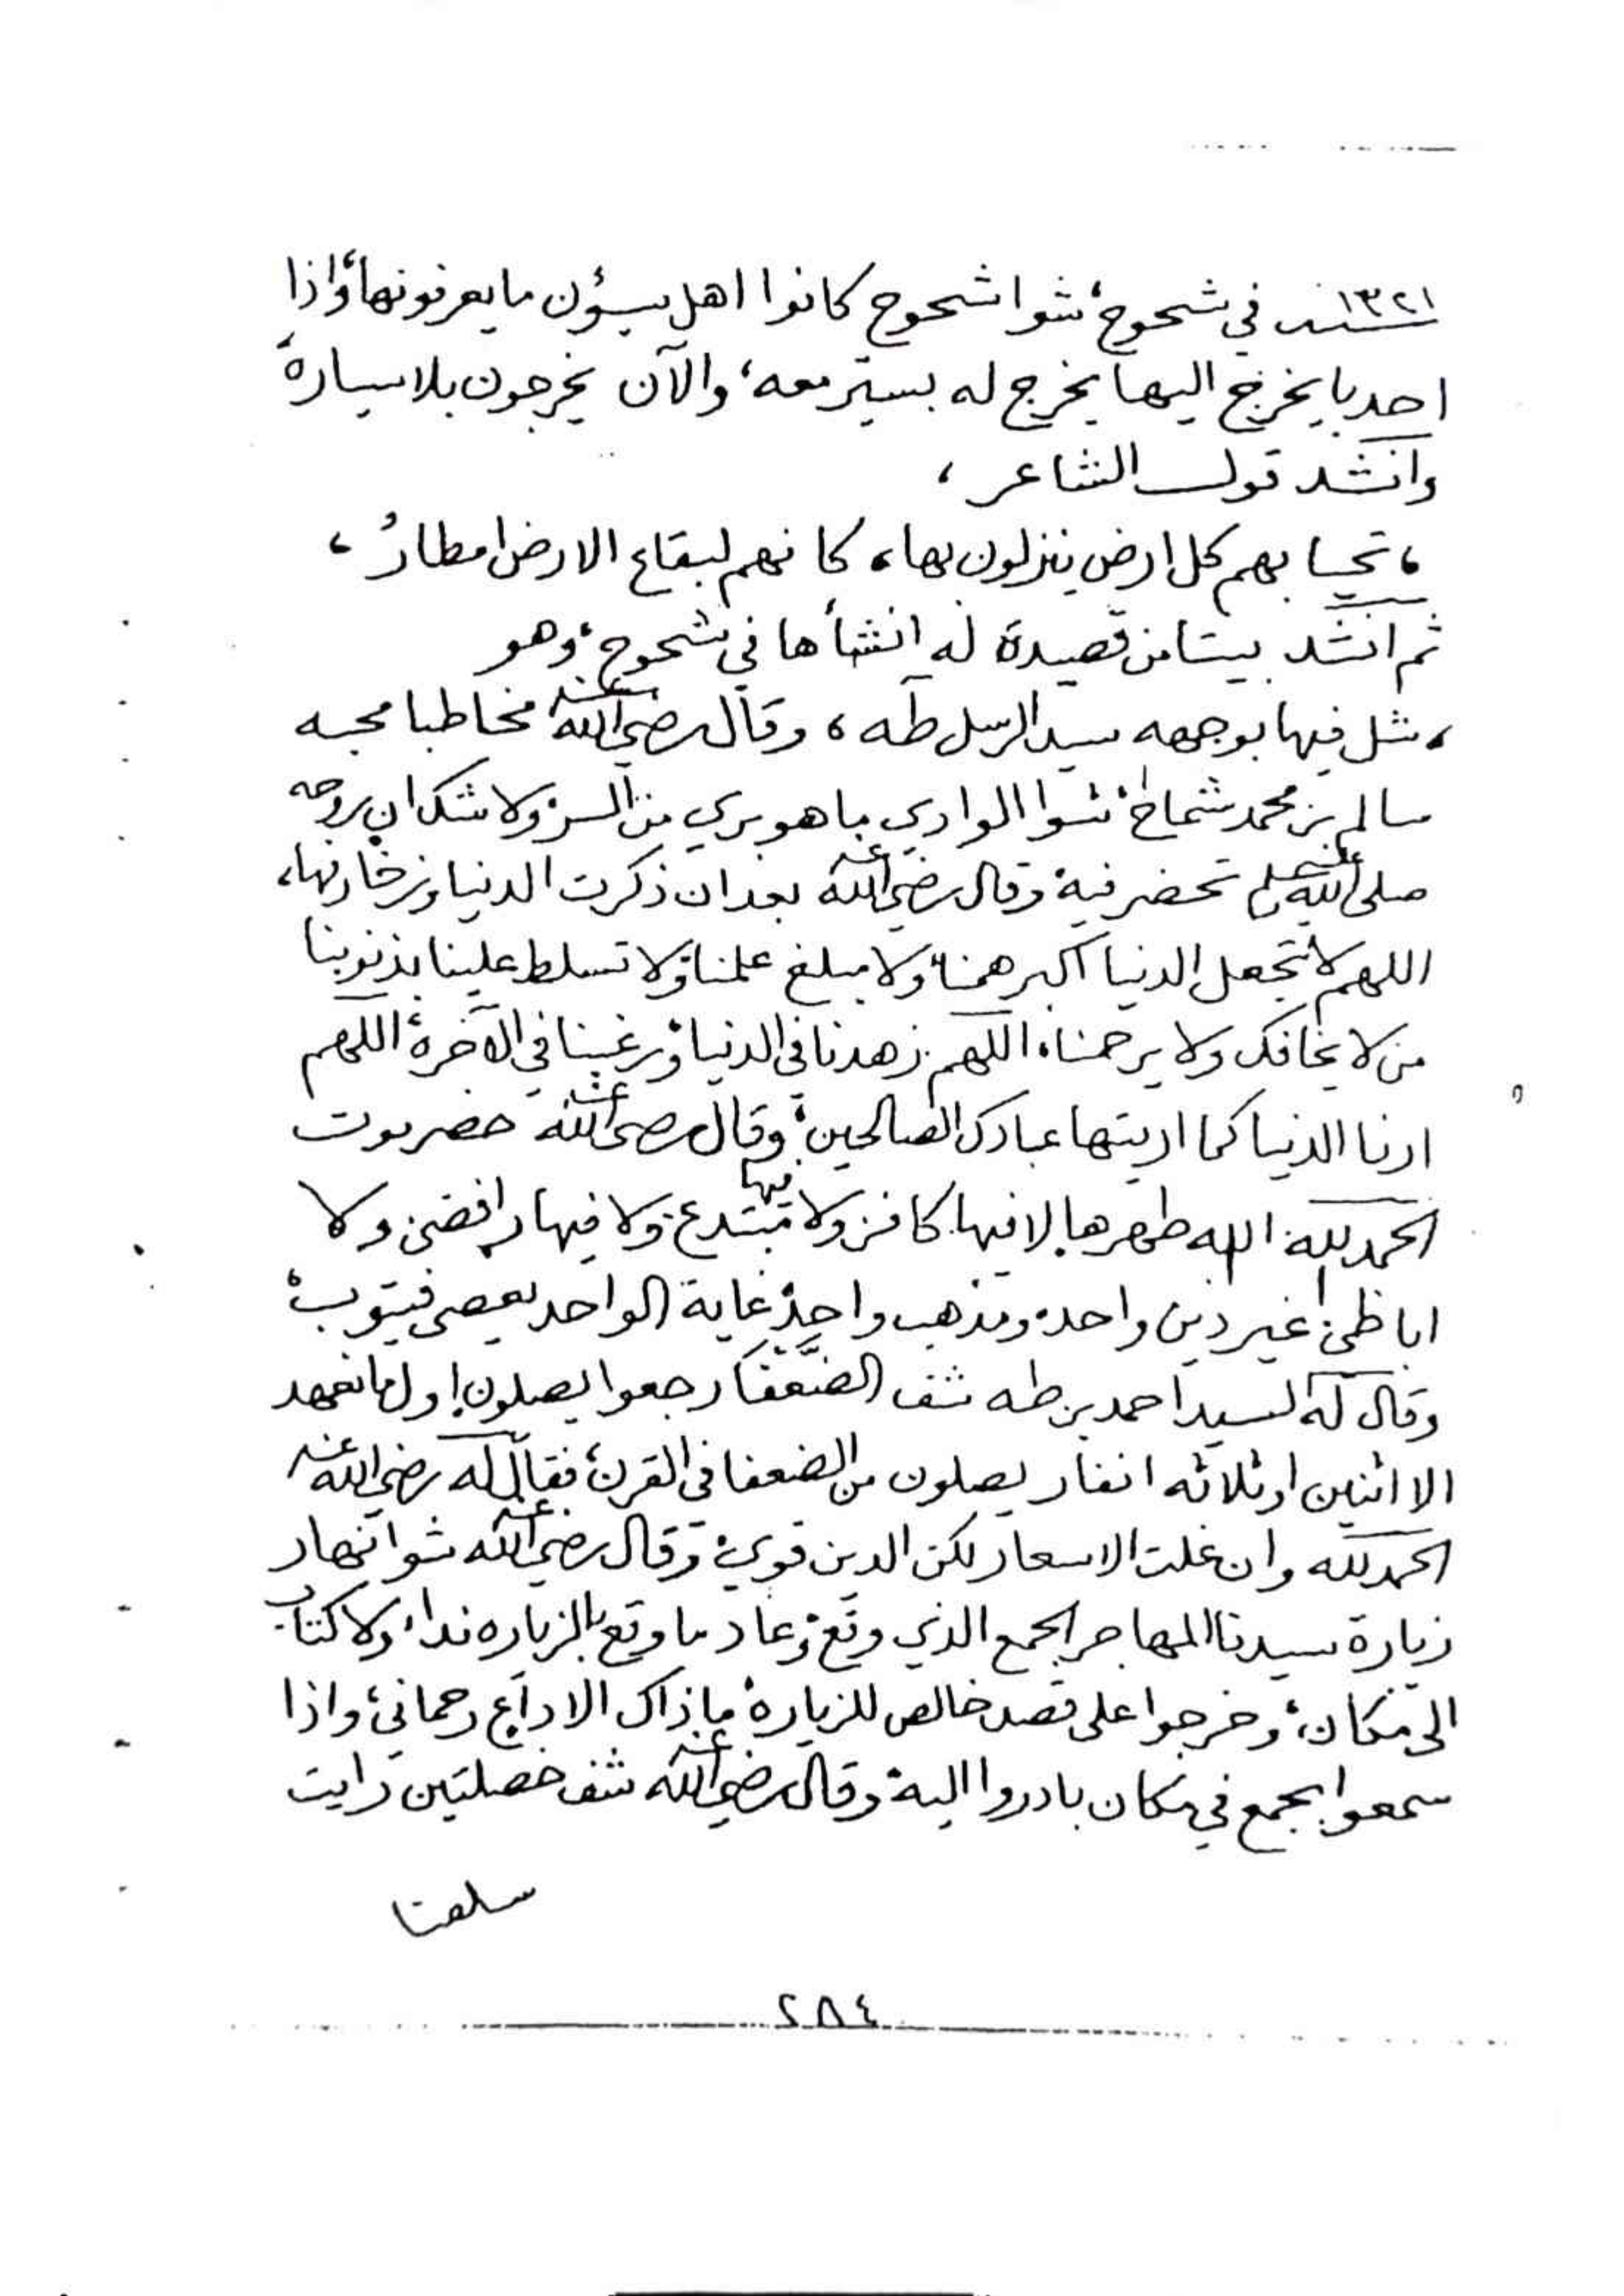 ١٣٢١ سنة في شحوح، شوا شحوح كانوا اهل سيؤن ما يعرفونها، واذا
احد با يخرج اليها يخرج له بسيّر معه، والآن يخرجون بلا سيارة،
وانشد قول الشاعر،
، تحيا بهم كل ارض ينزلون بها، كانهم لبقاع الارض امطارُ،
ثم انشد بيتا من قصيدة له انشأها في شحوح، وهو
، مثل فيها بوجهه سيد الرسل طه، وقال رضي الله عنه مخاطبا محبه
سالم بن محمد شماخ، شوا الوادي ما هو بري من السر، ولا شك ان روحه
صلى الله عليه وسلم تحضر فيه، وقال رضي الله عنه بعد ان ذكرت الدنيا وزخارفها،
اللهم لا تجعل الدنيا اكبر همنا، ولا مبلغ علمنا، ولا تسلط علينا بذنوبنا
من لا يخافك ولا يرحمنا، اللهم زهدنا في الدنيا، ورغبنا في الآخرة، اللهم
ارنا الدنيا كما اريتها عبادك الصالحين، وقال رضي الله عنه حضرموت
الحمد لله الله طهرها، لا فيها كافر، ولا فيها مبتدع، ولا فيها رافضي، ولا
اباظي، غير دين واحد، ومذهب واحد، غاية الواحد يعصي فيتوب،
وقال له السيد احمد بن طه شف الضَّعَفَا رجعوا يصلون، اول ما نعهد
الا اثنين او ثلاثه انفار يصلون من الضعفا في القرن، فقال له رضي الله عنه
الحمد لله وان غلت الاسعار لكن الدين قوي، وقال رضي الله عنه شوا نهار
زيارة سيدنا المهاجر الجمع الذي وقع، وعاد ما وقع بالزياره نداء، ولا كتاب
الى مكان، وخرجوا على قصد خالص للزيارة، ما ذاك الا داع رحماني، واذا
سمعوا بجمع في مكان بادروا اليه، وقال رضي الله عنه شف خصلتين رايت
سلفنا
٢٨٤